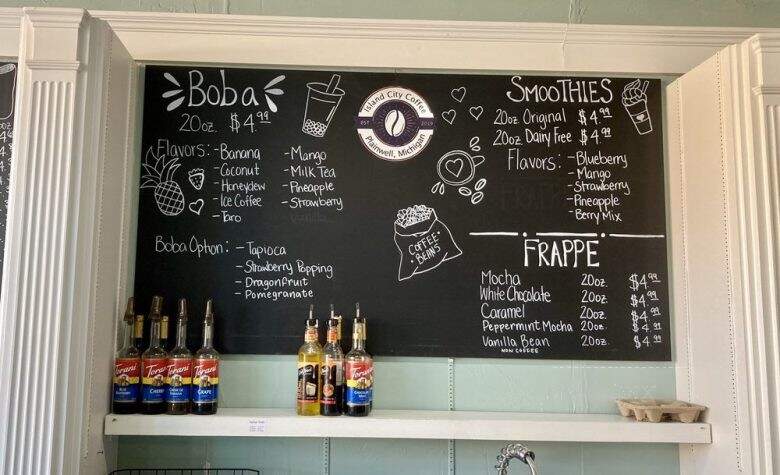 Boba
20oz. $4.99
Flavors: - Banana
- Coconut
- Honeydew
- Ice Coffee
- Taro
- Mango
- Milk Tea
- Pineapple
- Strawberry
Boba Option: - Tapioca
- Strawberry Popping
- Dragonfruit
- Pomegranate
Island City Coffee
EST 2019
Plainwell, Michigan
COFFEE
BEANS
SMOOTHIES
20oz Original $4.99
20oz Dairy Free $4.99
Flavors: - Blueberry
- Mango
- Strawberry
- Pineapple
- Berry Mix
FRAPPE
Mocha 20oz. $4.99
White Chocolate 20oz. $4.99
Caramel 20oz. $4.99
Peppermint Mocha 20oz. $4.99
Vanilla Bean 20oz. $4.99
NON COFFEE
Torani
Torani
CHERRY
Torani
Torani
GRAPE
Torani